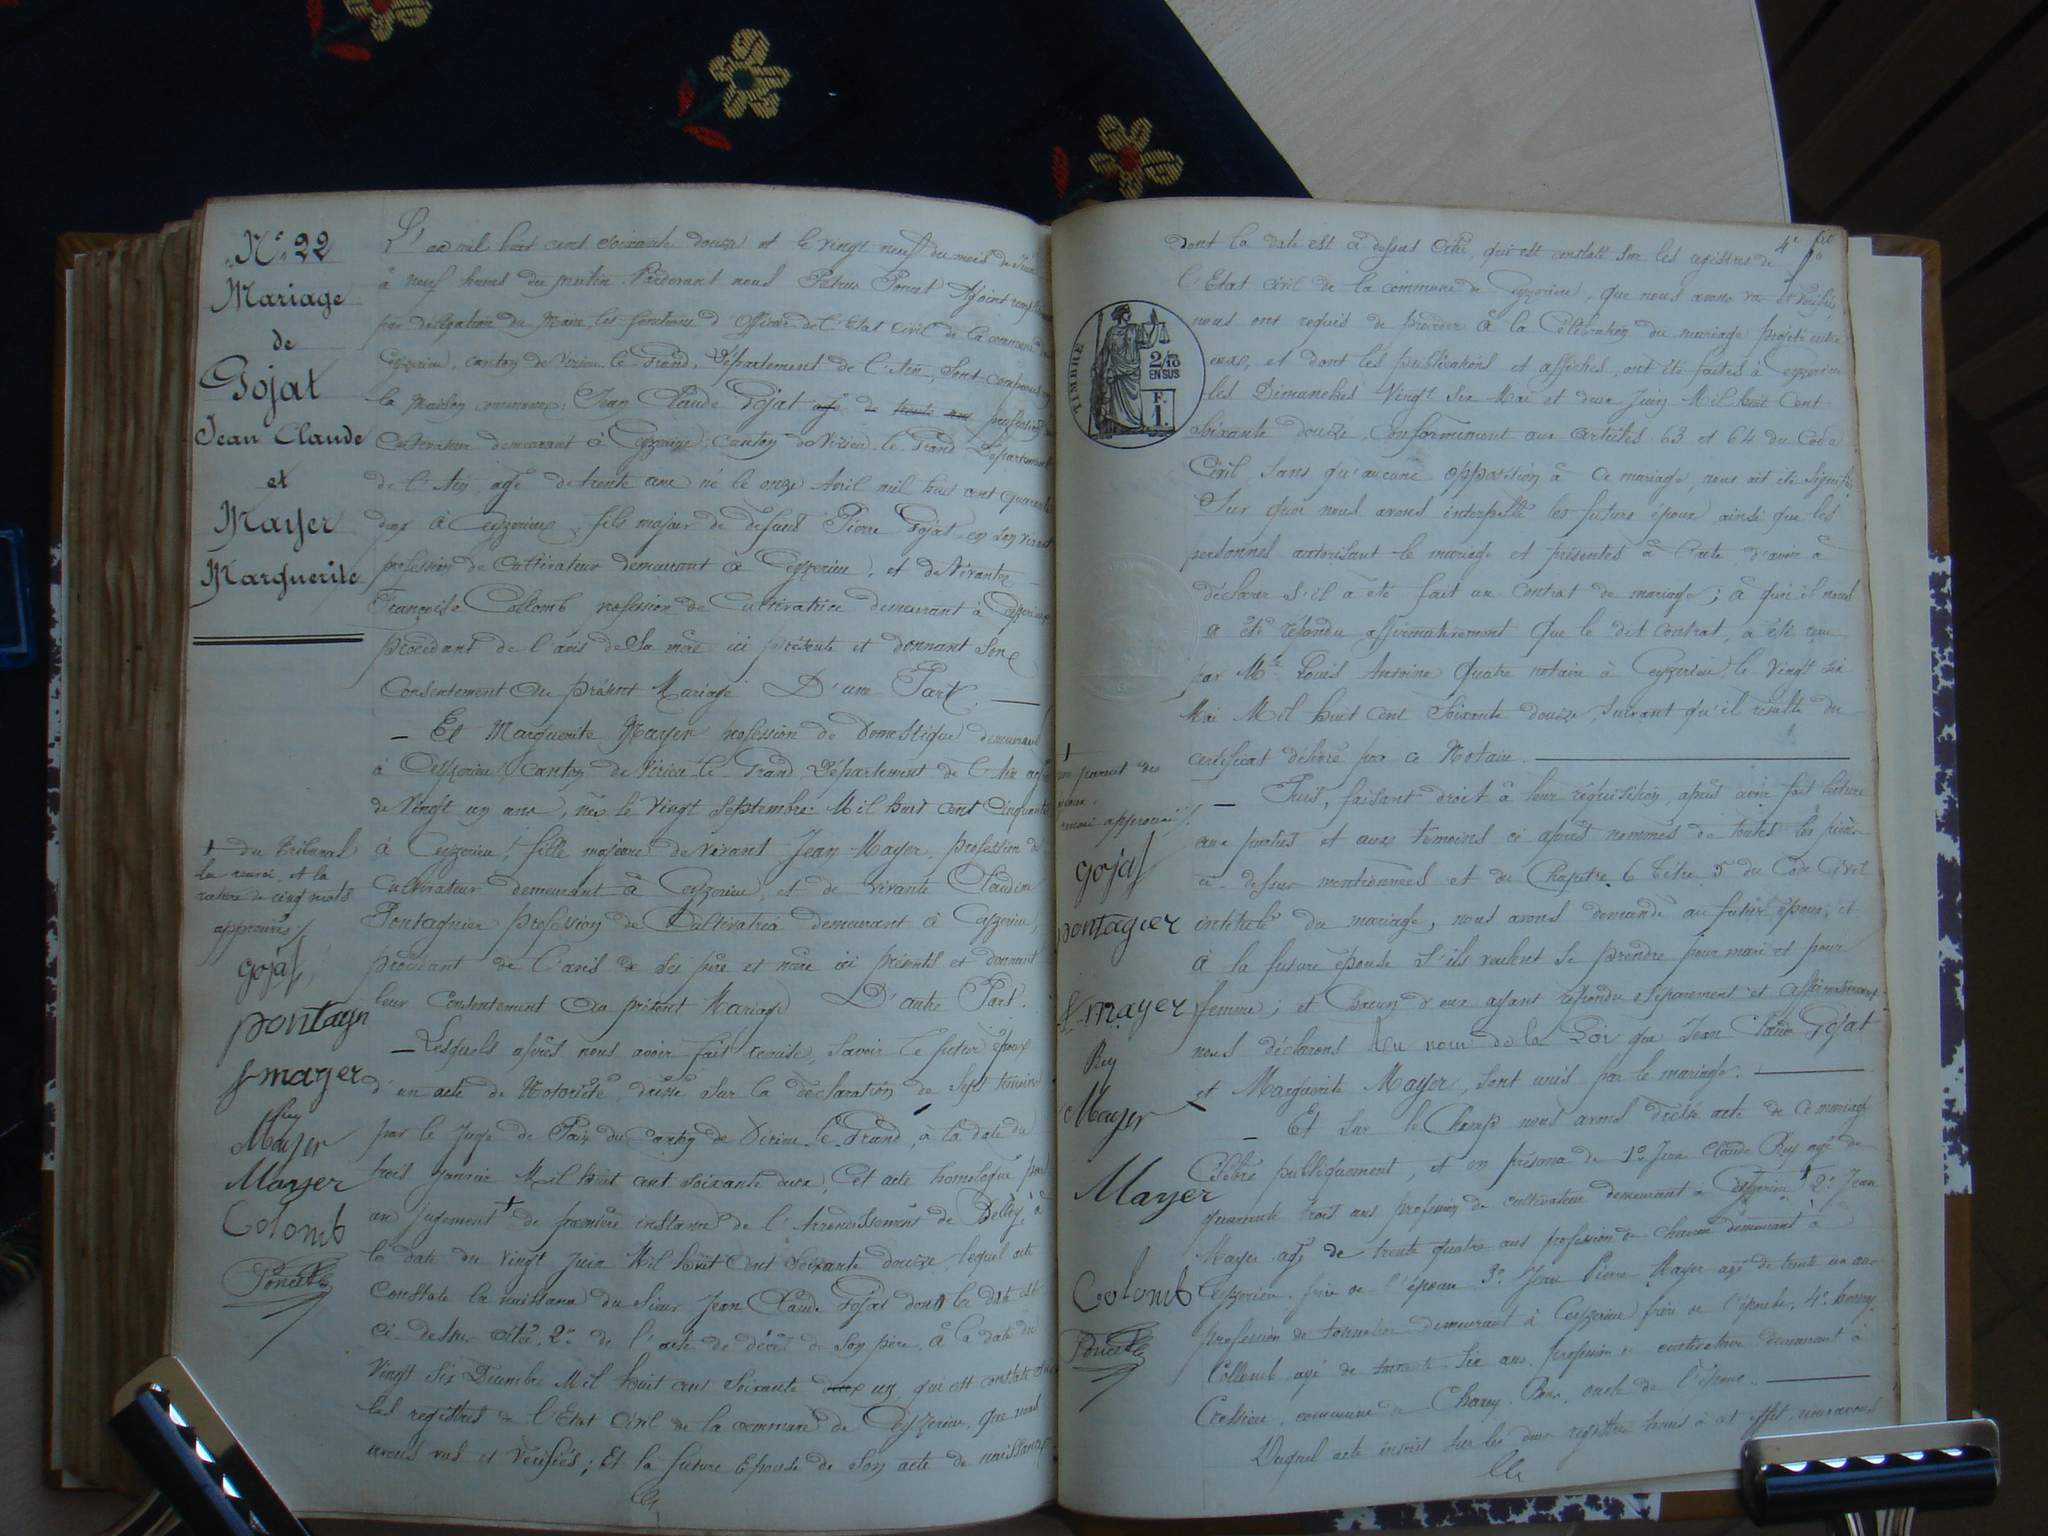 N° 22
Mariage
de
Gojat
Jean Claude
et
Mayer
Marguerite
L'an mil huit cent soixante douze et le vingt neuf du mois de Juin
à neuf heures du matin Pardevant nous Petrus Poncet Adjoint
par délégation du Maire les fonctions d'Officier de l'Etat Civil de la commune de
Ceyzerieu, canton de Virieu-le-Grand, Département de l'Ain, Sont comparus
la maison commune: Jean Claude Gojat âgé de trente ans profession
Cultivateur demeurant à Ceyzerieu, canton de Virieu-le-Grand Département
de l'Ain, agé de trente ans né le onze Avril mil huit cent quarante
deux à Ceyzerieu, fils majeur de defunt Pierre Gojat en son vivant
profession de Cultivateur demeurant à Ceyzerieu, et de vivante
Françoise Collomb profession de Cultivatrice demeurant à Ceyzerieu
procédant de l'avis de sa mère ici présente et donnant son
Consentement au présent Mariage D'une Part.
— Et Marguerite Mayer profession de Domestique demeurant
à Ceyzerieu Canton de Virieu-le-Grand Département de l'Ain agée
de vingt un ans, née le vingt Septembre Mil huit cent cinquante
à Ceyzerieu, fille majeure de vivant Jean Mayer, profession de
Cultivateur demeurant à Ceyzerieu, et de vivante Claudine
Pontagnier profession de Cultivatrice demeurant à Ceyzerieu,
procédant de l'avis de ses père et mère ici présents et donnant
leur Consentement au présent Mariage D'autre Part.
— Lesquels après nous avoir fait remise, savoir le futur époux
d'un acte de Notoriété dressé sur la déclaration de sept témoins
par le Juge de Paix du Canton de Virieu-le-Grand, à la date du
trois Janvier Mil huit cent soixante deux, Cet acte homologué par
un Jugement † de première instance de l'Arrondissement de Belley, à
la date du vingt Juin Mil huit cent soixante douze, lequel acte
Constate la naissance du Sieur Jean Claude Gojat dont la date est
ci-dessus citée, 2° de l'acte de décès de son père, à la date du
vingt six Décembre Mil huit cent soixante deux un, qui est constaté
les registres de l'Etat Civil de la commune de Ceyzerieu, que nous
avons vus et vérifiés; Et la future Epouse de son acte de naissance
† du Tribunal
le renvoi, et la
rature de cinq mots
approuvés
gojat
pontagn
f-mayer
Rey
Mayer
Mayer
Colomb
Poncet
4e
dont la date est ci dessus citée, qui est constaté sur les registres de
l'Etat civil de la commune de Ceyzerieu, que nous avons vu et vérifié
nous ont requis de procéder à la Célébration du mariage projeté entre
eux, et dont les publications et affiches ont été faites à Ceyzerieu
les Dimanches Vingt six Mai et deux Juin Mil huit Cent
soixante douze, conformément aux articles 63 et 64 du Code
Civil, sans qu'aucune opposition à ce mariage nous ait été signifiée
Sur quoi nous avons interpellé les futurs époux ainsi que les
personnes autorisant le mariage et présentes à l'acte d'avoir à
déclarer s'il a été fait un Contrat de mariage; à quoi il nous
a été répondu affirmativement que le dit Contrat, a été reçu
par Me Louis Antoine Quatre notaire à Ceyzerieu le vingt six
Mai Mil huit Cent soixante douze, suivant qu'il résulte du
certificat délivré par ce Notaire.
— Puis, faisant droit à leur réquisition, après avoir fait lecture
aux parties et aux témoins ci après nommés de toutes les pièces
ci-dessus mentionnées et du Chapitre 6 Titre 5 du Code Civil
intitulé du mariage, nous avons demandé au futur époux et
à la future épouse s'ils veulent se prendre pour mari et pour
femme; et Chacun d'eux ayant répondu séparément et affirmativement
nous déclarons Au nom de la Loi que Jean Claude Gojat
et Marguerite Mayer, sont unis par le mariage.
— Et sur le Champ nous avons dressé acte de ce mariage
Célébré publiquement, et en présence de 1° Jean Claude Rey agé de
quarante trois ans profession de cultivateur demeurant à Ceyzerieu † 2° Jean
Mayer agé de trente quatre ans profession de charron demeurant à
Ceyzerieu frère de l'épouse 3° Jean Pierre Mayer agé de trente un ans
profession de tonnelier demeurant à Ceyzerieu frère de l'épouse, 4°
Collomb agé de six ans, profession de cultivateur demeurant à
Cressieu, commune de Chazey-Bons, oncle de l'époux.
Duquel acte inscrit sur les deux registres tenus à cet effet, nous avons
TIMBRE
2/10
EN SUS
F.
1.
† non parent des
époux.
renvoi approuvé
gojat
pontagier
f-mayer
Rey
Mayer
Mayer
Colomb
Poncet